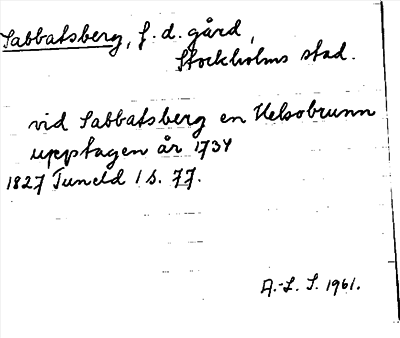 Sabbatsberg, f. d. gård,
Stockholms stad.
vid Sabbatsberg en Helsobrunn
upptagen år 1734
1827 Tuneld 1 s. 77.
A.-L. S. 1961.